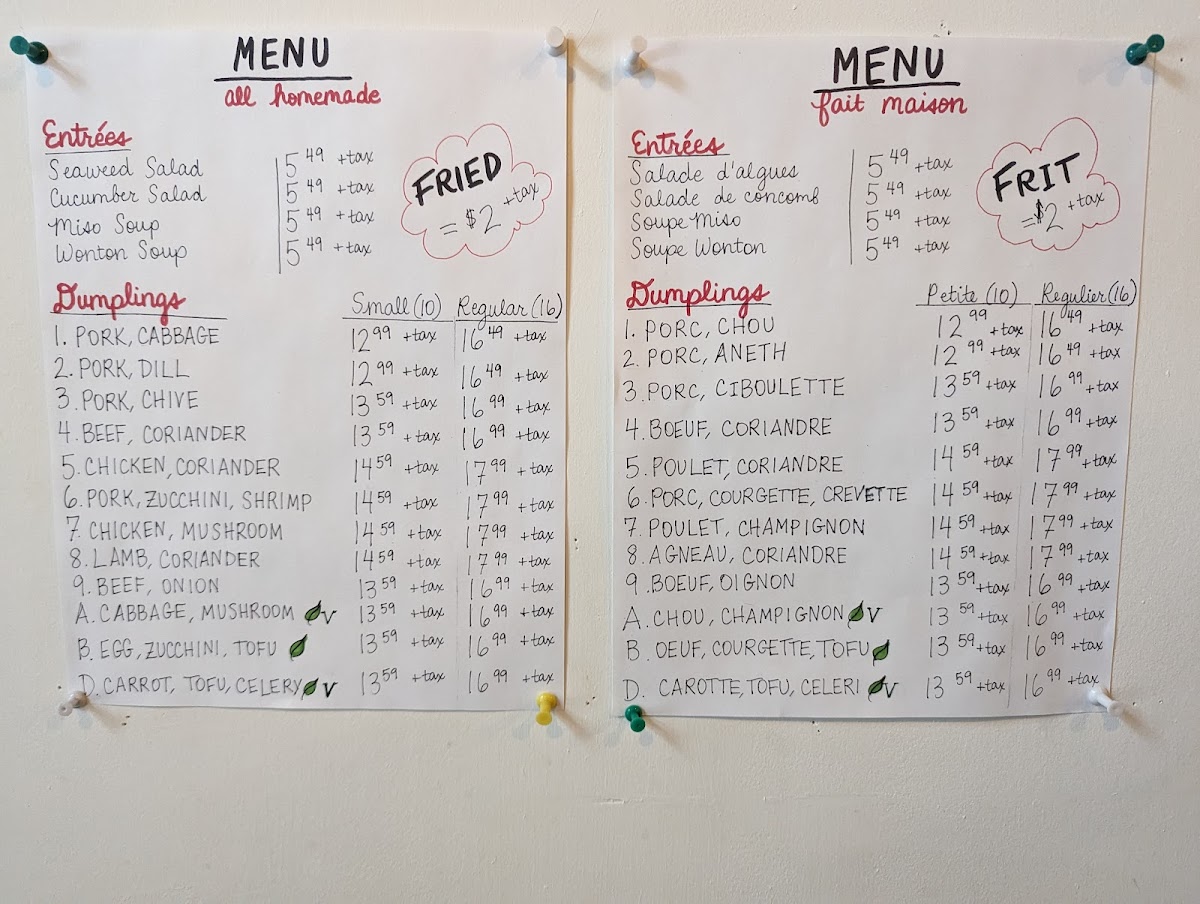 MENU
all homemade
Entrées
Seaweed Salad 5 49 +tax
Cucumber Salad 5 49 +tax
Miso Soup 5 49 +tax
Wonton Soup 5 49 +tax
FRIED
= $2 +tax
Dumplings Small (10) Regular (16)
1. PORK, CABBAGE 12 99 +tax 16 49 +tax
2. PORK, DILL 12 99 +tax 16 49 +tax
3. PORK, CHIVE 13 59 +tax 16 99 +tax
4. BEEF, CORIANDER 13 59 +tax 16 99 +tax
5. CHICKEN, CORIANDER 14 59 +tax 17 99 +tax
6. PORK, ZUCCHINI, SHRIMP 14 59 +tax 17 99 +tax
7. CHICKEN, MUSHROOM 14 59 +tax 17 99 +tax
8. LAMB, CORIANDER 14 59 +tax 17 99 +tax
9. BEEF, ONION 13 59 +tax 16 99 +tax
A. CABBAGE, MUSHROOM V 13 59 +tax 16 99 +tax
B. EGG, ZUCCHINI, TOFU 13 59 +tax 16 99 +tax
D. CARROT, TOFU, CELERY V 13 59 +tax 16 99 +tax
MENU
fait maison
Entrées
Salade d'algues 5 49 +tax
Salade de concomb 5 49 +tax
Soupe Miso 5 49 +tax
Soupe Wonton 5 49 +tax
FRIT
= $2 +tax
Dumplings Petite (10) Regulier (16)
1. PORC, CHOU 12 99 +tax 16 49 +tax
2. PORC, ANETH 12 99 +tax 16 49 +tax
3. PORC, CIBOULETTE 13 59 +tax 16 99 +tax
4. BOEUF, CORIANDRE 13 59 +tax 16 99 +tax
5. POULET, CORIANDRE 14 59 +tax 17 99 +tax
6. PORC, COURGETTE, CREVETTE 14 59 +tax 17 99 +tax
7. POULET, CHAMPIGNON 14 59 +tax 17 99 +tax
8. AGNEAU, CORIANDRE 14 59 +tax 17 99 +tax
9. BOEUF, OIGNON 13 59 +tax 16 99 +tax
A. CHOU, CHAMPIGNON V 13 59 +tax 16 99 +tax
B. OEUF, COURGETTE, TOFU 13 59 +tax 16 99 +tax
D. CAROTTE, TOFU, CELERI V 13 59 +tax 16 99 +tax